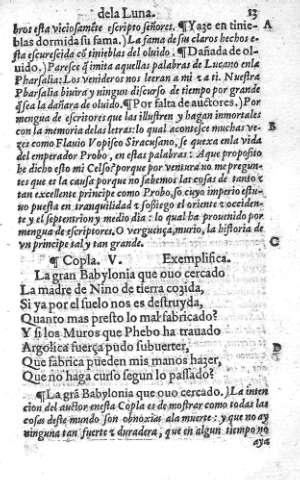 dela Luna. 13
bros esta viciosamẽte escripto señores. ¶ Yaze en tinie- A
blas dormida su fama.) La fama de sus claros hechos e-
sta escurescida cõ tinieblas del oluido. ¶ Dañada de ol-
uido.) Paresce q̃ imita aquellas palabras de Lucano enla
Pharsalia: Los venideros nos leeran a mi e a ti. Nuestra
Pharsalia biuira y ningun discurso de tiempo por grande
q̃ sea la dañara de oluido. ¶ Por falta de auctores.) Por
mengua de escritores que las illustren y hagan inmortales
con la memoria delas letras: lo qual acontesce muchas ve- B
zes como Flauio Vopisco Siracusano, se quexa enla vida
del emperador Probo, en estas palabras: A que proposito
he dicho esto mi Celso? porque por ventura no me pregun-
tes que es la causa porque no sabemos las cosas de tanto e
tan excellente principe como Probo, so cuyo imperio estu-
uo puesta en tranquilidad e sosiego el oriente e occiden-
te y el septentrion y medio dia: lo qual ha prouenido por
mengua de escriptores. O verguença, murio, la historia de
vn principe tal y tan grande. C
¶ Copla. V. Exemplifica.
La gran Babylonia que ouo cercado
La madre de Nino de tierra cozida,
Si ya por el suelo nos es destruyda,
Quanto mas presto lo mal fabricado?
Y si los Muros que Phebo ha trauado
Argolica fuerça pudo subuerter, D
Que fabrica pueden mis manos hazer,
Que no haga curso segun lo passado?
¶ La grã Babylonia que ouo cercado.) La inten
cion del auctor enesta Copla es de mostrar como todas las
cosas deste mundo son obnoxias ala muerte: y que no ay
ninguna tan fuerte e duradera, que en algun tiempo no
aya